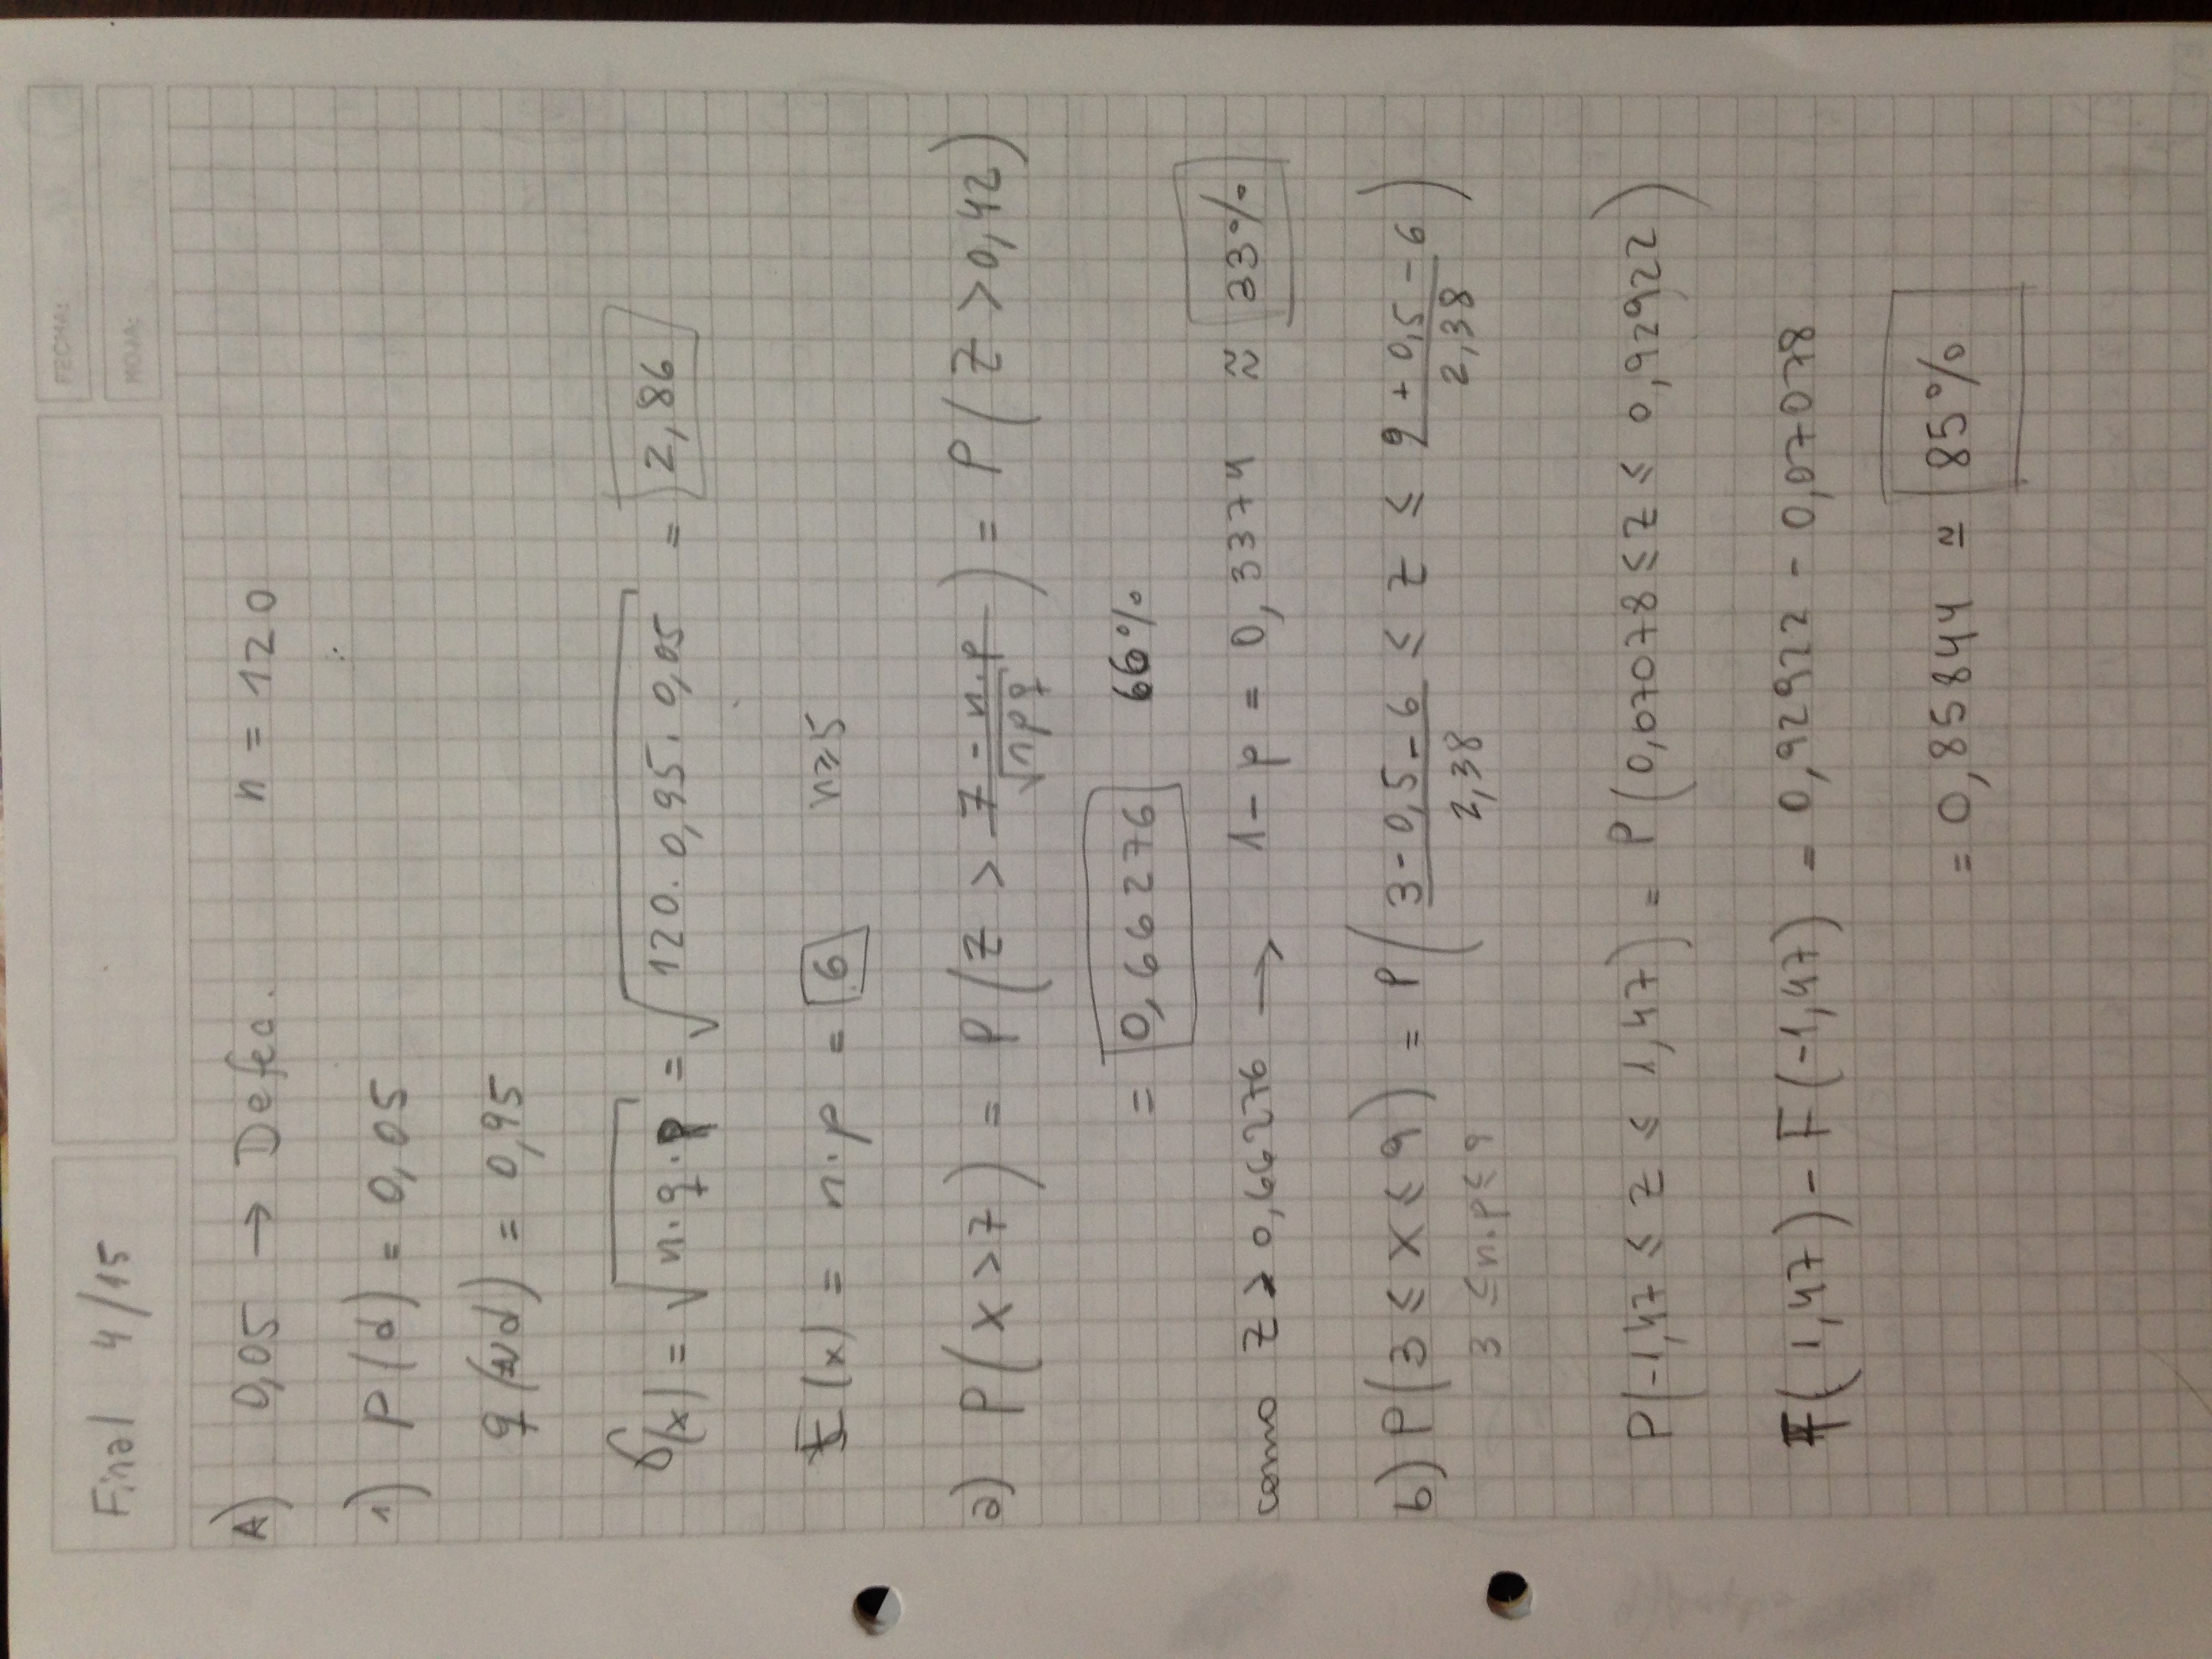 Final 4/15
FECHA:
HOJA:
A) 0,05 → Defec. n = 120
1) p(d) = 0,05
q(Nd) = 0,95
σ(x) = √n.q.p = √120.0,95.0,05 = 2,86
E(x) = n.p = 6 n≥5
a) P(x>7) = P(Z > 7-n.p / √npq) = P(Z > 0,42)
= 0,66276 66%
como Z > 0,66276 → 1-p = 0,3374 ≈ 33%
b) P(3 ≤ x ≤ 9) = P(3-0,5-6 / 2,38 ≤ z ≤ 9+0,5-6 / 2,38)
3 ≤ n.p ≤ 9
P(-1,47 ≤ z ≤ 1,47) = P(0,07078 ≤ z ≤ 0,92922)
F(1,47) - F(-1,47) = 0,92922 - 0,07078
= 0,85844 ≃ 85%